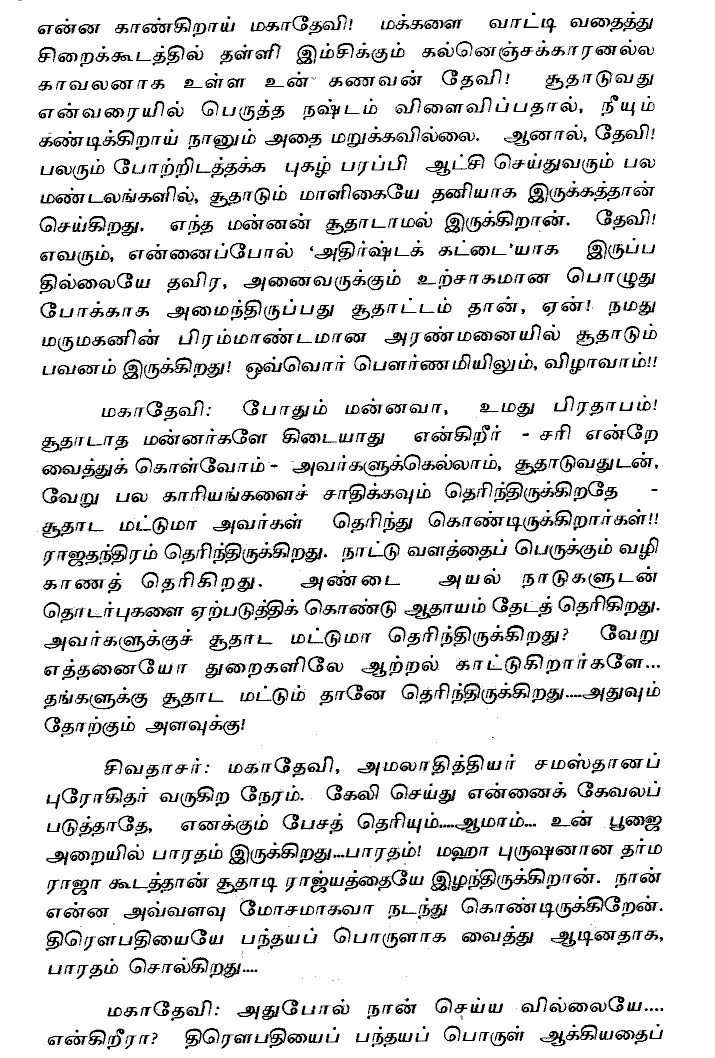 என்ன காண்கிறாய் மகாதேவி! மக்களை வாட்டி வதைத்து
சிறைக்கூடத்தில் தள்ளி இம்சிக்கும் கல்னெஞ்சக்காரனல்ல
காவலனாக உள்ள உன் கணவன் தேவி! சூதாடுவது
என்வரையில் பெருத்த நஷ்டம் விளைவிப்பதால், நீயும்
கண்டிக்கிறாய் நானும் அதை மறுக்கவில்லை. ஆனால், தேவி!
பலரும் போற்றிடத்தக்க புகழ் பரப்பி ஆட்சி செய்துவரும் பல
மண்டலங்களில், சூதாடும் மாளிகையே தனியாக இருக்கத்தான்
செய்கிறது. எந்த மன்னன் சூதாடாமல் இருக்கிறான். தேவி!
எவரும், என்னைப்போல் ‘அதிர்ஷ்டக் கட்டை’யாக இருப்ப
தில்லையே தவிர, அனைவருக்கும் உற்சாகமான பொழுது
போக்காக அமைந்திருப்பது சூதாட்டம் தான், ஏன்! நமது
மருமகனின் பிரம்மாண்டமான அரண்மனையில் சூதாடும்
பவனம் இருக்கிறது! ஒவ்வொர் பௌர்ணமியிலும், விழாவாம்!!
மகாதேவி: போதும் மன்னவா, உமது பிரதாபம்!
சூதாடாத மன்னர்களே கிடையாது என்கிறீர் - சரி என்றே
வைத்துக் கொள்வோம் - அவர்களுக்கெல்லாம், சூதாடுவதுடன்,
வேறு பல காரியங்களைச் சாதிக்கவும் தெரிந்திருக்கிறதே -
சூதாட மட்டுமா அவர்கள் தெரிந்து கொண்டிருக்கிறார்கள்!!
ராஜதந்திரம் தெரிந்திருக்கிறது. நாட்டு வளத்தைப் பெருக்கும் வழி
காணத் தெரிகிறது. அண்டை அயல் நாடுகளுடன்
தொடர்புகளை ஏற்படுத்திக் கொண்டு ஆதாயம் தேடத் தெரிகிறது.
அவர்களுக்குச் சூதாட மட்டுமா தெரிந்திருக்கிறது? வேறு
எத்தனையோ துறைகளிலே ஆற்றல் காட்டுகிறார்களே...
தங்களுக்கு சூதாட மட்டும் தானே தெரிந்திருக்கிறது....அதுவும்
தோற்கும் அளவுக்கு!
சிவதாசர்: மகாதேவி, அமலாதித்தியர் சமஸ்தானப்
புரோகிதர் வருகிற நேரம். கேலி செய்து என்னைக் கேவலப்
படுத்தாதே, எனக்கும் பேசத் தெரியும்....ஆமாம்... உன் பூஜை
அறையில் பாரதம் இருக்கிறது...பாரதம்! மஹா புருஷனான தர்ம
ராஜா கூடத்தான் சூதாடி ராஜ்யத்தையே இழந்திருக்கிறான். நான்
என்ன அவ்வளவு மோசமாகவா நடந்து கொண்டிருக்கிறேன்.
திரௌபதியையே பந்தயப் பொருளாக வைத்து ஆடினதாக,
பாரதம் சொல்கிறது....
மகாதேவி: அதுபோல் நான் செய்ய வில்லையே....
என்கிறீரா? திரௌபதியைப் பந்தயப் பொருள் ஆக்கியதைப்